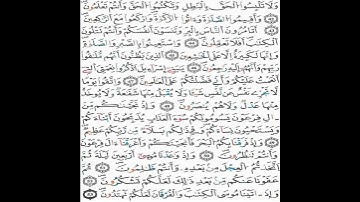 وَلَا تَلْبِسُوا۟ الْحَقَّ بِالْبَٰطِلِ وَتَكْتُمُوا۟ الْحَقَّ وَأَنتُمْ تَعْلَمُونَ
وَأَقِيمُوا۟ الصَّلَوٰةَ وَءَاتُوا۟ الزَّكَوٰةَ وَارْكَعُوا۟ مَعَ الرَّٰكِعِينَ
أَتَامُرُونَ النَّاسَ بِالْبِرِّ وَتَنسَوْنَ أَنفُسَكُمْ وَأَنتُمْ تَتْلُونَ
الْكِتَٰبَ أَفَلَا تَعْقِلُونَ وَاسْتَعِينُوا۟ بِالصَّبْرِ وَالصَّلَوٰةِ
وَإِنَّهَا لَكَبِيرَةٌ اِلَّا عَلَى الْخَٰشِعِينَ الَّذِينَ يَظُنُّونَ أَنَّهُم مُّلَٰقُوا۟
رَبِّهِمْ وَأَنَّهُمُۥٓ إِلَيْهِ رَٰجِعُونَ يَٰبَنِےٓ إِسْرَآءِيلَ اَذْكُرُوا۟ نِعْمَتِيَ اَلتِےٓ
أَنْعَمْتُ عَلَيْكُمْ وَأَنِّے فَضَّلْتُكُمْ عَلَى الْعَٰلَمِينَ وَاتَّقُوا۟ يَوْمًا
لَّا تَجْزِے نَفْسٌ عَن نَّفْسٍ شَيْـًٔا وَلَا يُقْبَلُ مِنْهَا شَفَٰعَةٌ وَلَا يُوخَذُ
مِنْهَا عَدْلٌ وَلَا هُمْ يُنصَرُونَ وَإِذْ نَجَّيْنَٰكُم مِّنَ
ءَالِ فِرْعَوْنَ يَسُومُونَكُمْ سُوٓءَ الْعَذَابِ يُذَبِّحُونَ أَبْنَآءَكُمْ
وَيَسْتَحْيُونَ نِسَآءَكُمْ وَفِے ذَٰلِكُم بَلَآءٌ مِّن رَّبِّكُمْ عَظِيمٌ
وَإِذْ فَرَقْنَا بِكُمُ الْبَحْرَ فَأَنجَيْنَٰكُمْ وَأَغْرَقْنَآ ءَالَ فِرْعَوْنَ
وَأَنتُمْ تَنظُرُونَ وَإِذْ وَٰعَدْنَا مُوسَىٰٓ أَرْبَعِينَ لَيْلَةً ثُمَّ
اَتَّخَذتُّمُ الْعِجْلَ مِنۢ بَعْدِهِۦ وَأَنتُمْ ظَٰلِمُونَ ثُمَّ
عَفَوْنَا عَنكُم مِّنۢ بَعْدِ ذَٰلِكَ لَعَلَّكُمْ تَشْكُرُونَ
وَإِذَ اٰتَيْنَا مُوسَى الْكِتَٰبَ وَالْفُرْقَانَ لَعَلَّكُمْ تَهْتَدُونَ